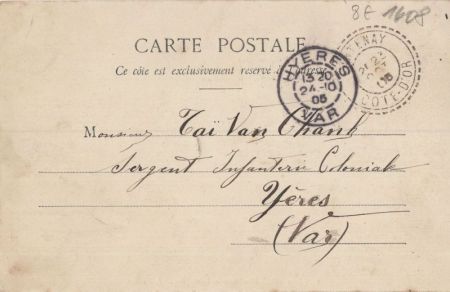 8E 1608
CARTE POSTALE
Ce côté est exclusivement réservé à l'adresse
HYÈRES
13 20
24-10
05
VAR
CÔTE-D'OR
Monsieur Taï Van Chanh
Sergent Infanterie Coloniale
Yères
(Var)